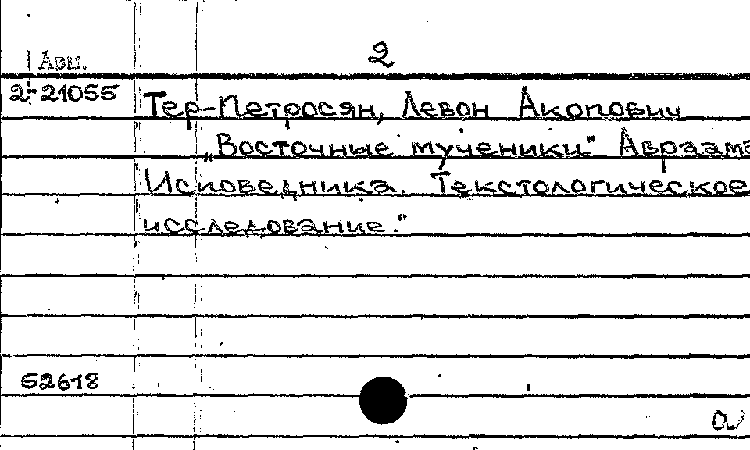 2
Авт.
2-21055
Тер-Петросян, Левон Акопович
„Восточные мученики" Авраама
Исповедника. Текстологическое
исследование."
52618